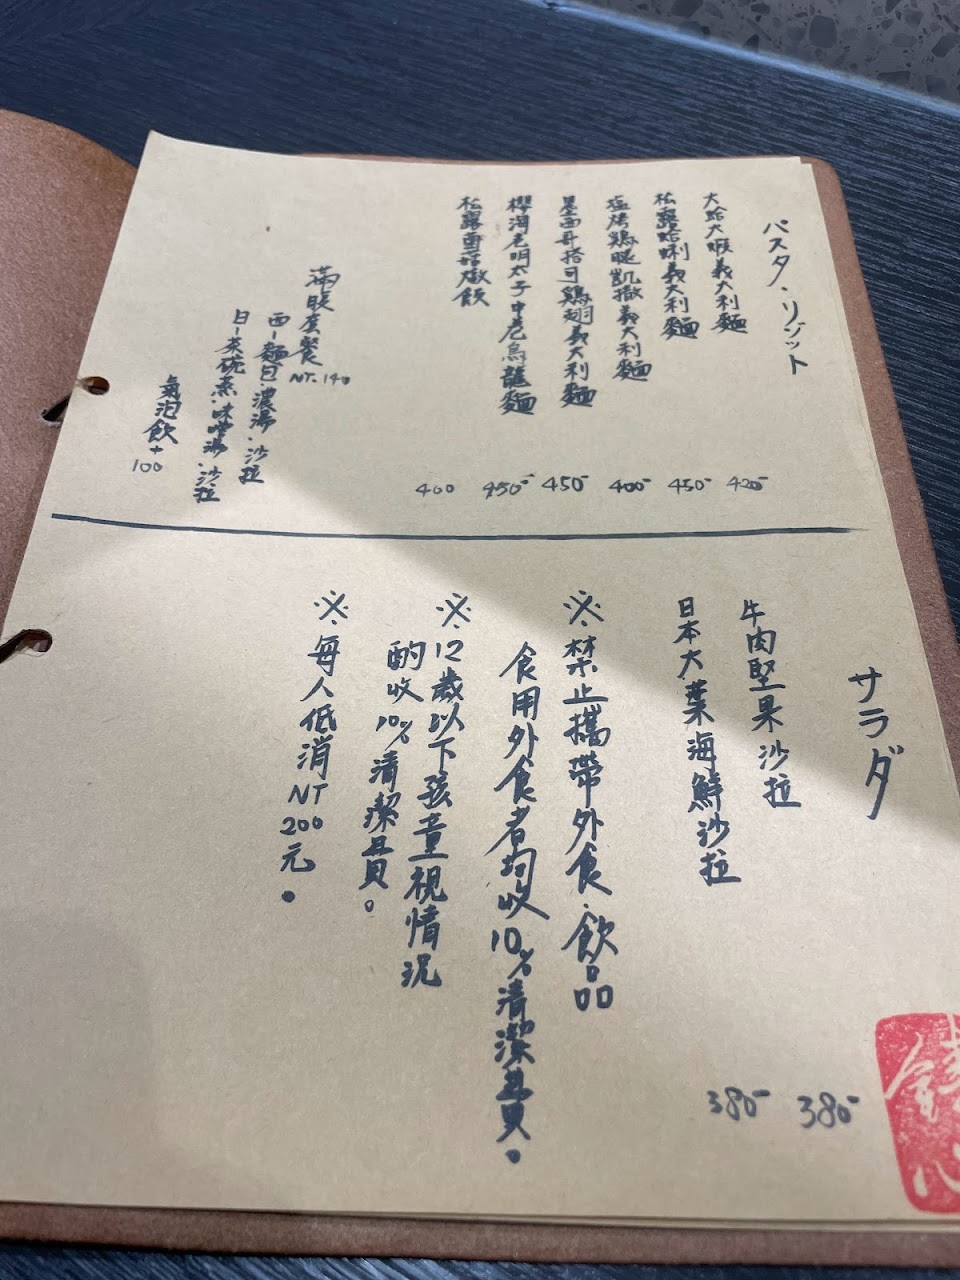 パスタ・リゾット
大蛤大蝦義大利麵 420-
松露蛤蜊義大利麵 450-
塩烤鶏腿凱撒義大利麵 400-
墨西哥搭可鶏翅義大利麵 450-
櫻海老明太子中卷烏龍麵 450-
松露野菇燉飯 400
滿腹套餐 NT.140
西-麵包.濃湯.沙拉
日-茶碗蒸.味噌湯.沙拉
氣泡飲+100
サラダ
牛肉堅果沙拉 380-
日本大葉海鮮沙拉 380-
※.禁止攜帶外食.飲品
食用外食者均收10%清潔費。
※.12歲以下孩童視情況
酌收10%清潔費。
※.每人低消NT200元。